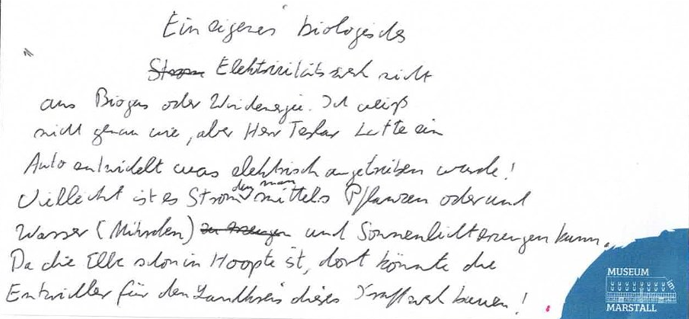 Ein eigenes biologisches
Strom Elektrizitätswerk nicht
aus Biogas oder Windenergie. Ich weiß
nicht genau wie, aber Herr Tesla hatte ein
Auto entwickelt was elektrisch angetrieben wurde!
Vielleicht ist es Strom den man mittels Pflanzen oder und
Wasser (Mihrden) zu erzeugen und Sonnenlicht erzeugen kann.
Da die Elbe schon in Hoopte ist, dort könnte die
Entwickler für den Landkreis dieses Kraftwerk bauen!
MUSEUM
MARSTALL